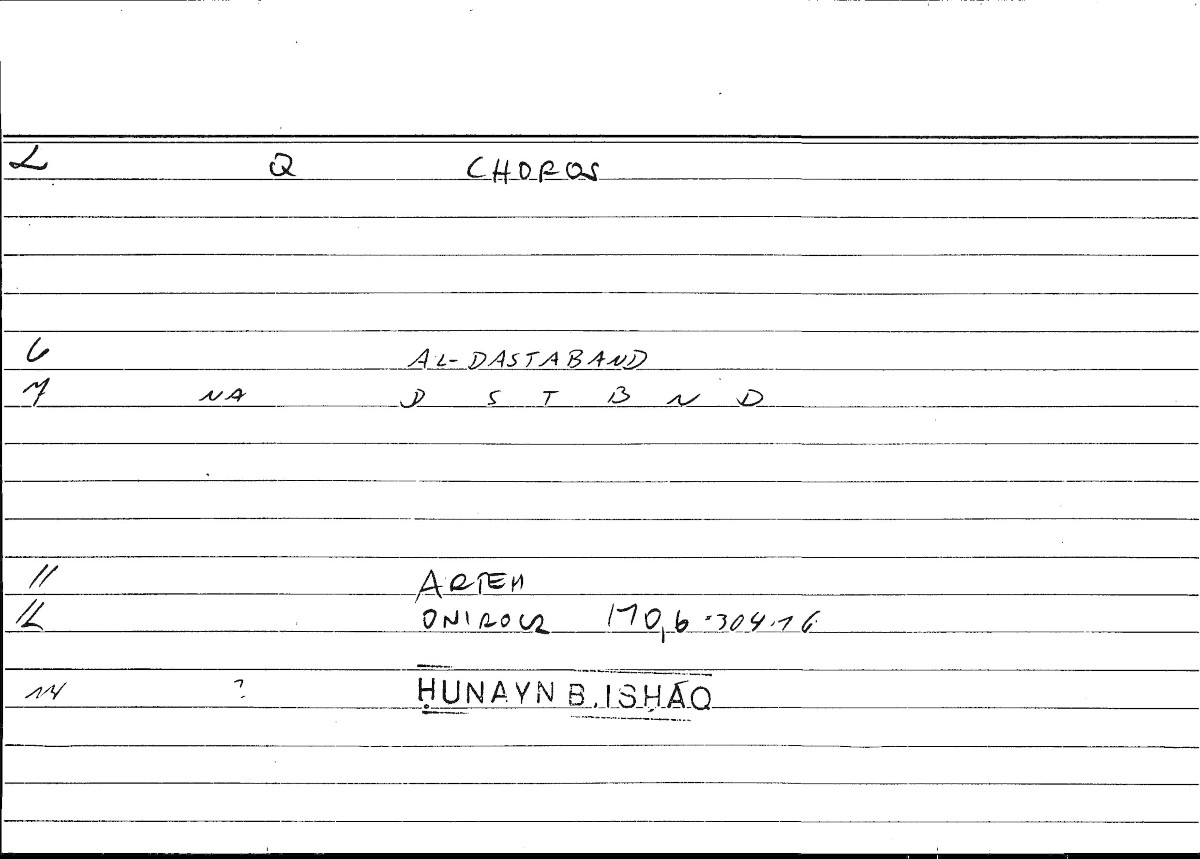 2 Q CHOROS
6 AL-DASTABAND
7 NA D S T B N D
11 ARTEM
12 ONIROCR 170,6 · 304.16
14 ? ḤUNAYN B. ISḤĀQ